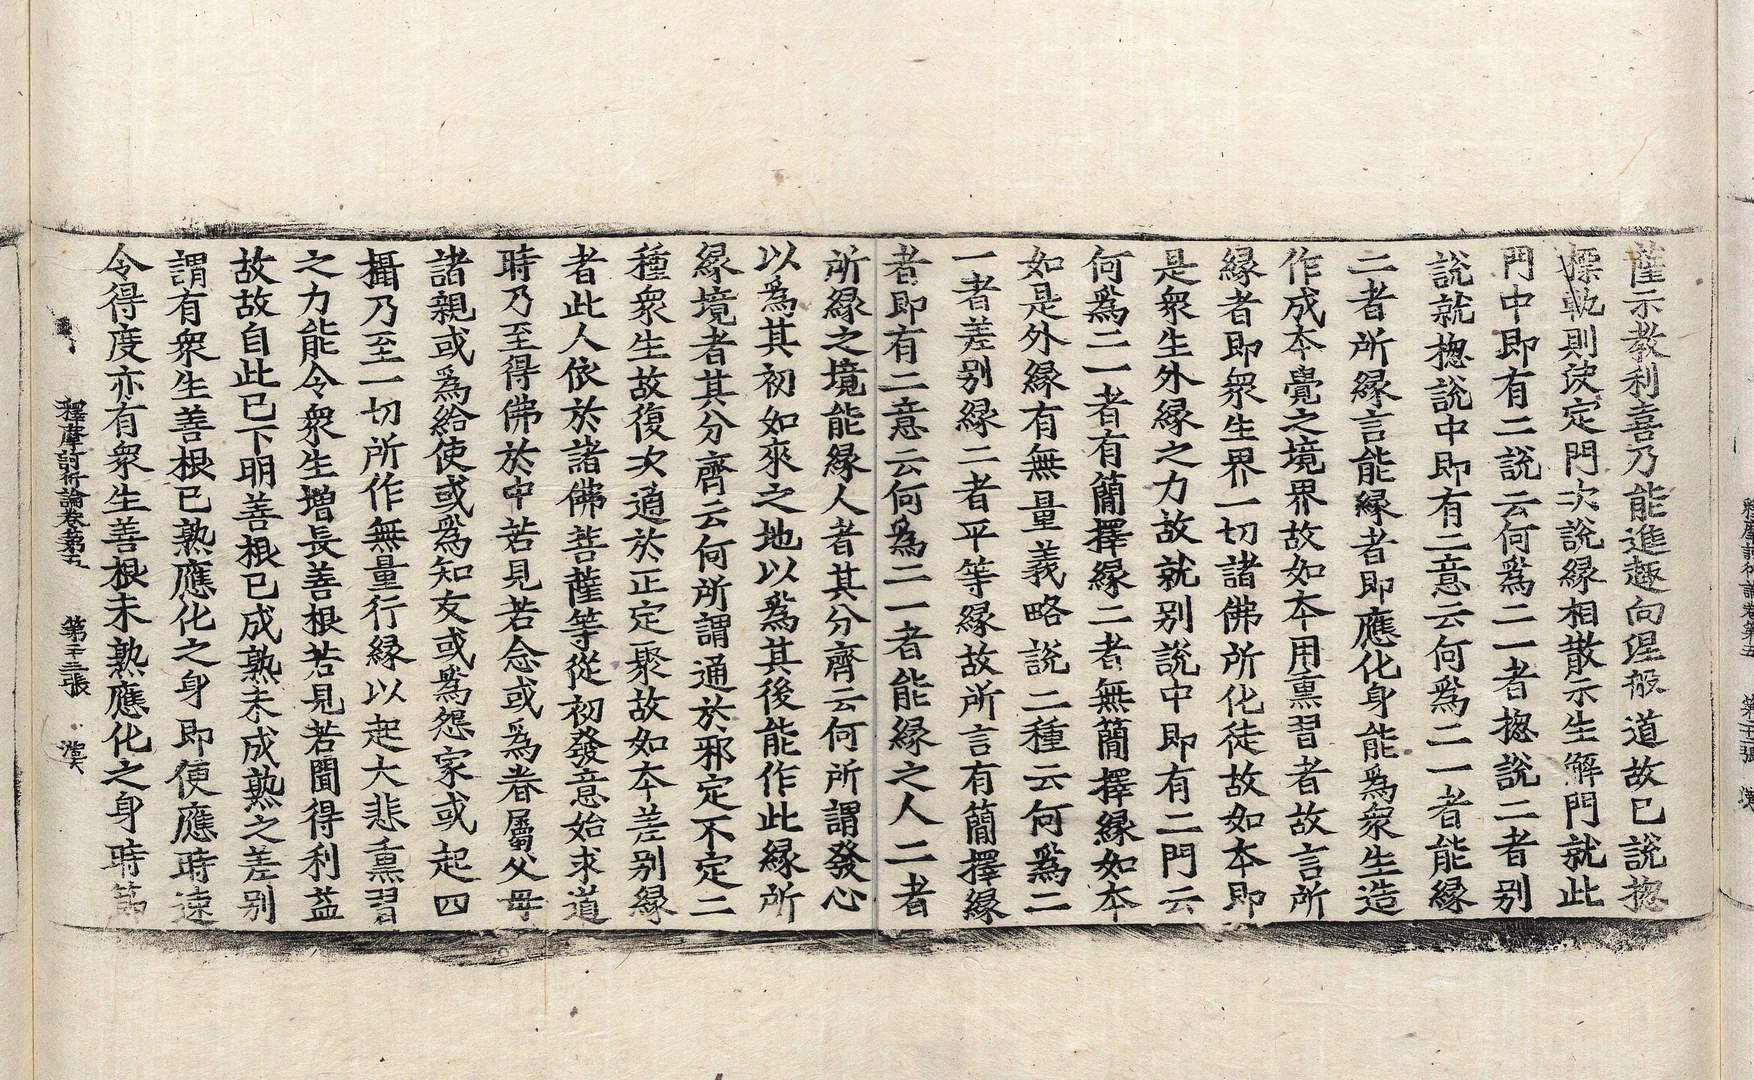 薩示教利喜乃能進趣向涅槃道故已說揔
標軌則決定門次說緣相散示生解門就此
門中即有二說云何爲二一者揔說二者別
說就揔說中即有二意云何爲二一者能緣
二者所緣言能緣者即應化身能爲衆生造
作成本覺之境界故如本用熏習者故言所
緣者即衆生界一切諸佛所化徒故如本即
是衆生外緣之力故就別說中即有二門云
何爲二一者有簡擇緣二者無簡擇緣如本
如是外緣有無量義略說二種云何爲二
一者差別緣二者平等緣故所言有簡擇緣
者即有二意云何爲二一者能緣之人二者
所緣之境能緣人者其分齊云何所謂發心
以爲其初如來之地以爲其後能作此緣所
緣境者其分齊云何所謂通於邪定不定二
種衆生故復次通於正定聚故如本差別緣
者此人依於諸佛菩薩等從初發意始求道
時乃至得佛於中若見若念或爲眷屬父母
諸親或爲給使或爲知友或爲怨家或起四
攝乃至一切所作無量行緣以起大悲熏習
之力能令衆生增長善根若見若聞得利益
故故自此已下明善根已成熟未成熟之差別
謂有衆生善根已熟應化之身即便應時速
令得度亦有衆生善根未熟應化之身時節
釋摩訶衍論卷第五 第十三張 漢